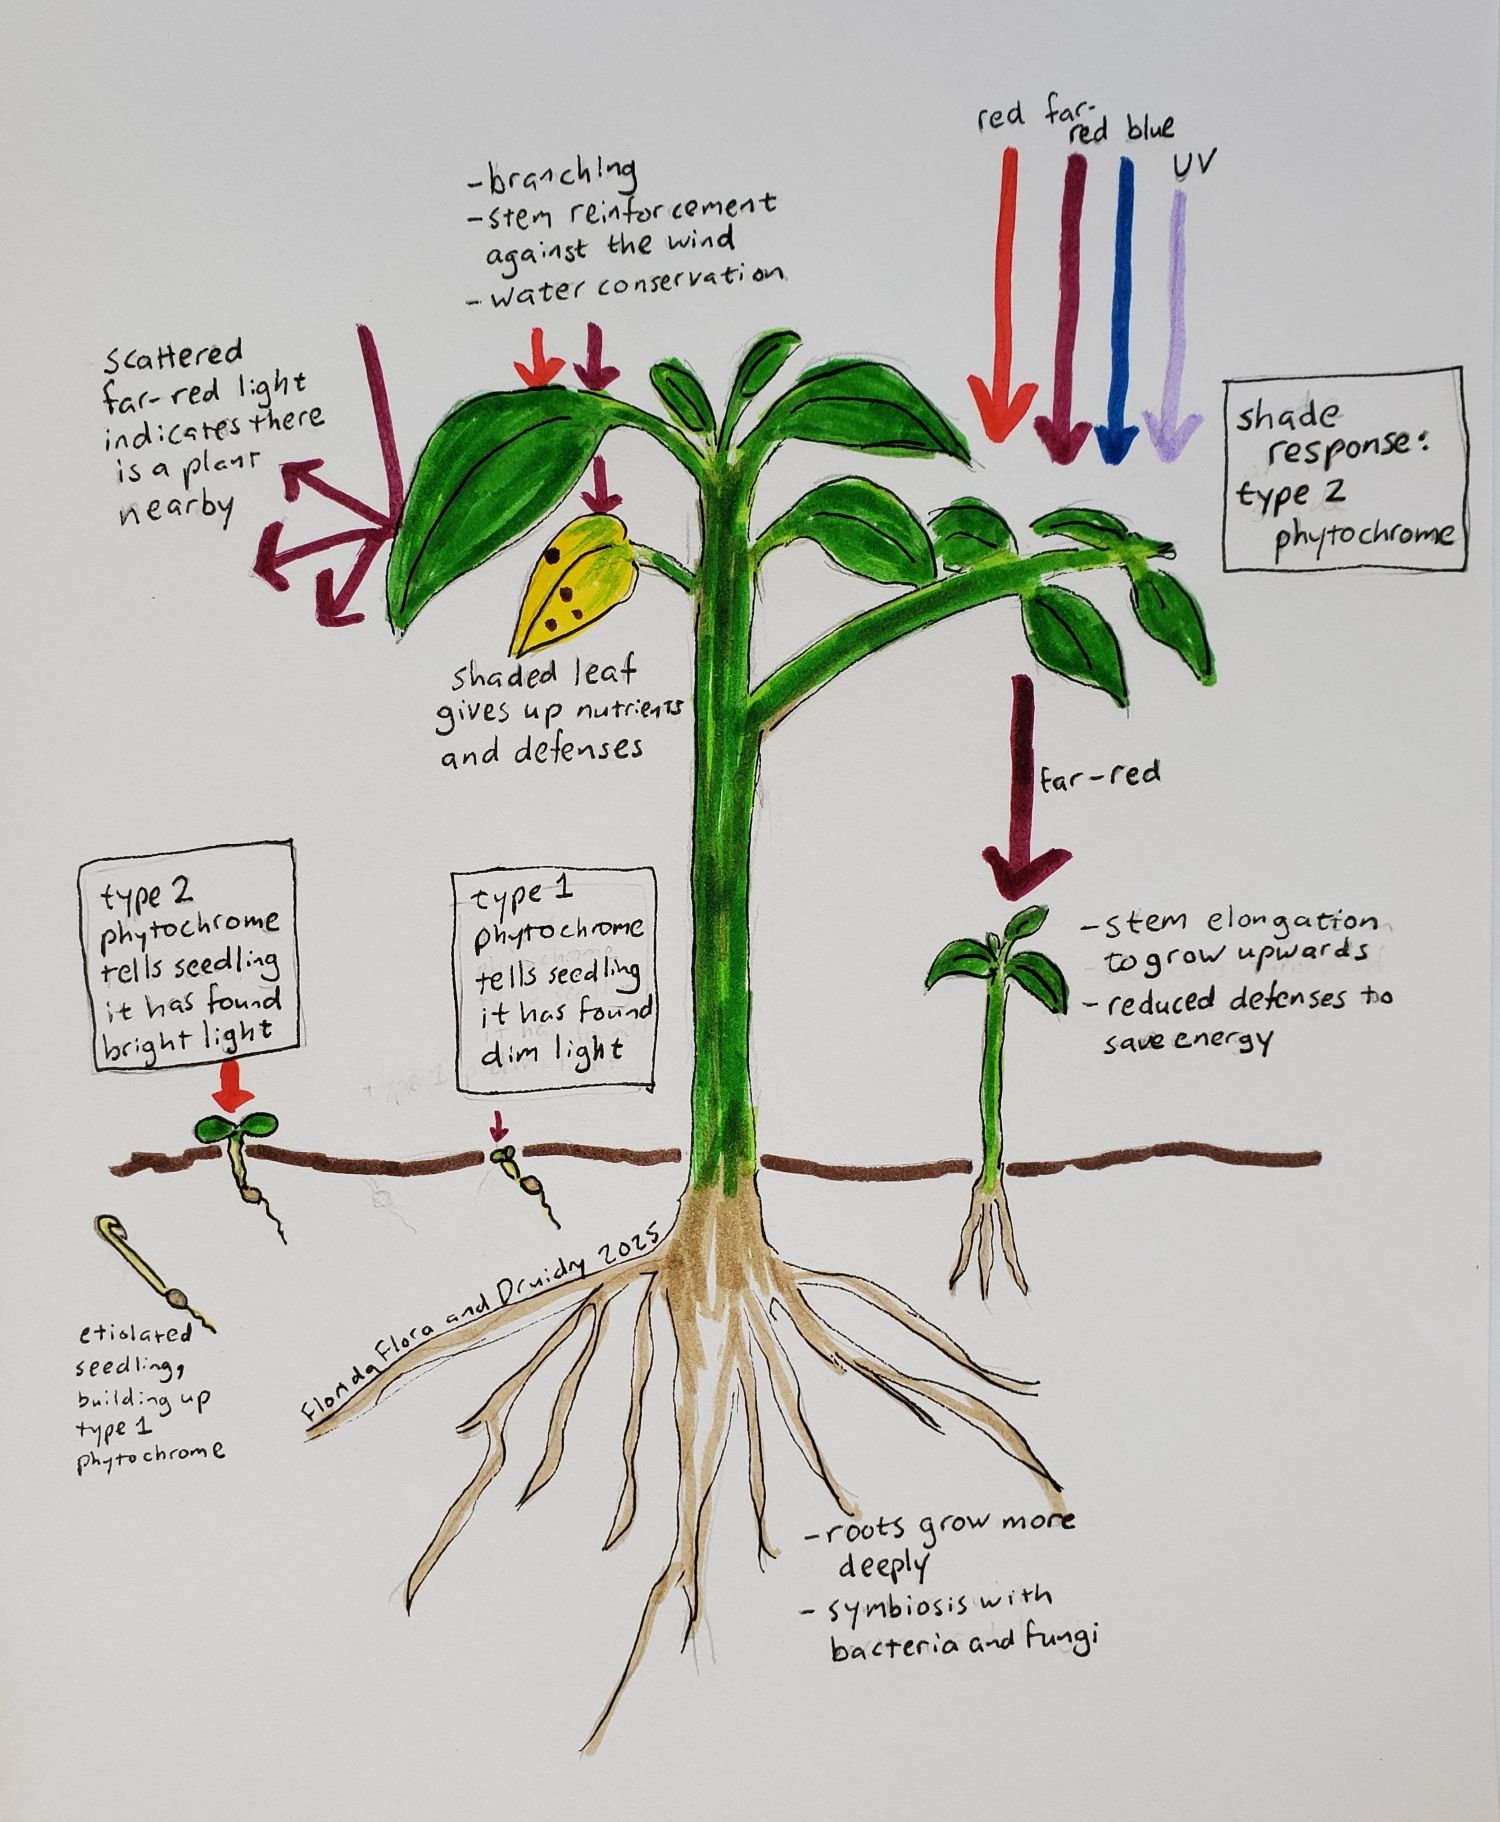 red far-
red blue
UV
-branching
-stem reinforcement
against the wind
-water conservation
scattered
far-red light
indicates there
is a plant
nearby
shade
response:
type 2
phytochrome
shaded leaf
gives up nutrients
and defenses
far-red
type 2
phytochrome
tells seedling
it has found
bright light
type 1
phytochrome
tells seedling
it has found
dim light
-stem elongation
to grow upwards
-reduced defenses to
save energy
etiolated
seedling,
building up
type 1
phytochrome
Florida Flora and Druidry 2025
-roots grow more
deeply
- symbiosis with
bacteria and fungi